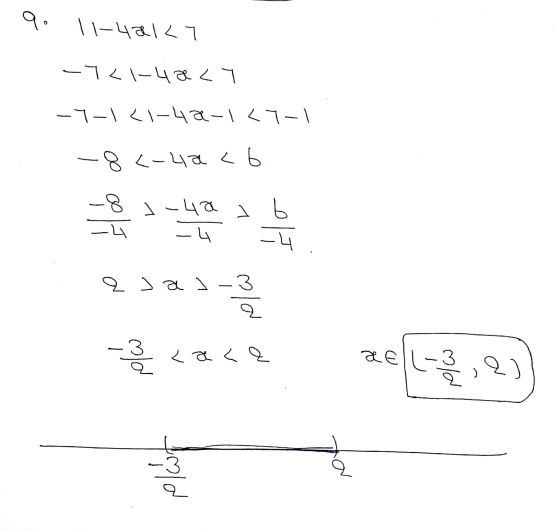 9. |1-4x|<7
-7<1-4x<7
-7-1<1-4x-1<7-1
-8<-4x<6
-8/-4 > -4x/-4 > 6/-4
2 > x > -3/2
-3/2 < x < 2 x∈ (-3/2, 2)
-3/2 2